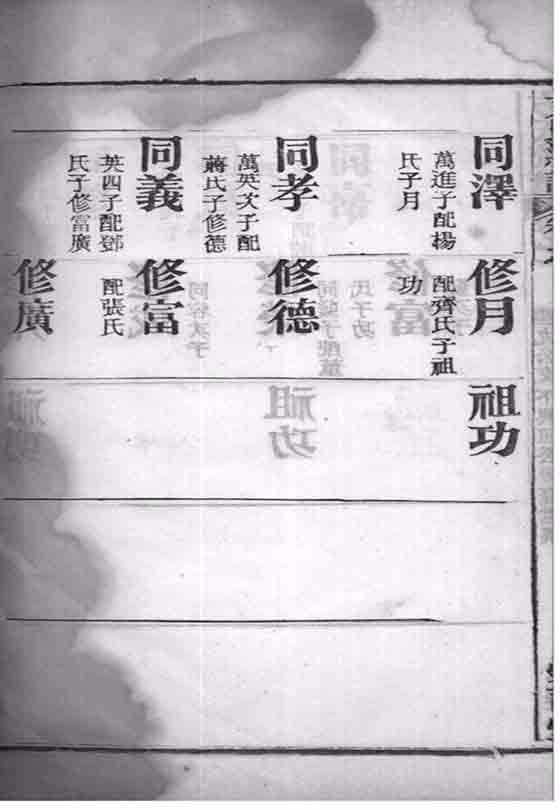 同澤
萬進子配揚
氏子月
同孝
萬英次子配
蔣氏子修德
同義
英四子配鄧
氏子修富廣
修月
配齊氏子祖
功
修德
修富
配張氏
修廣
祖功